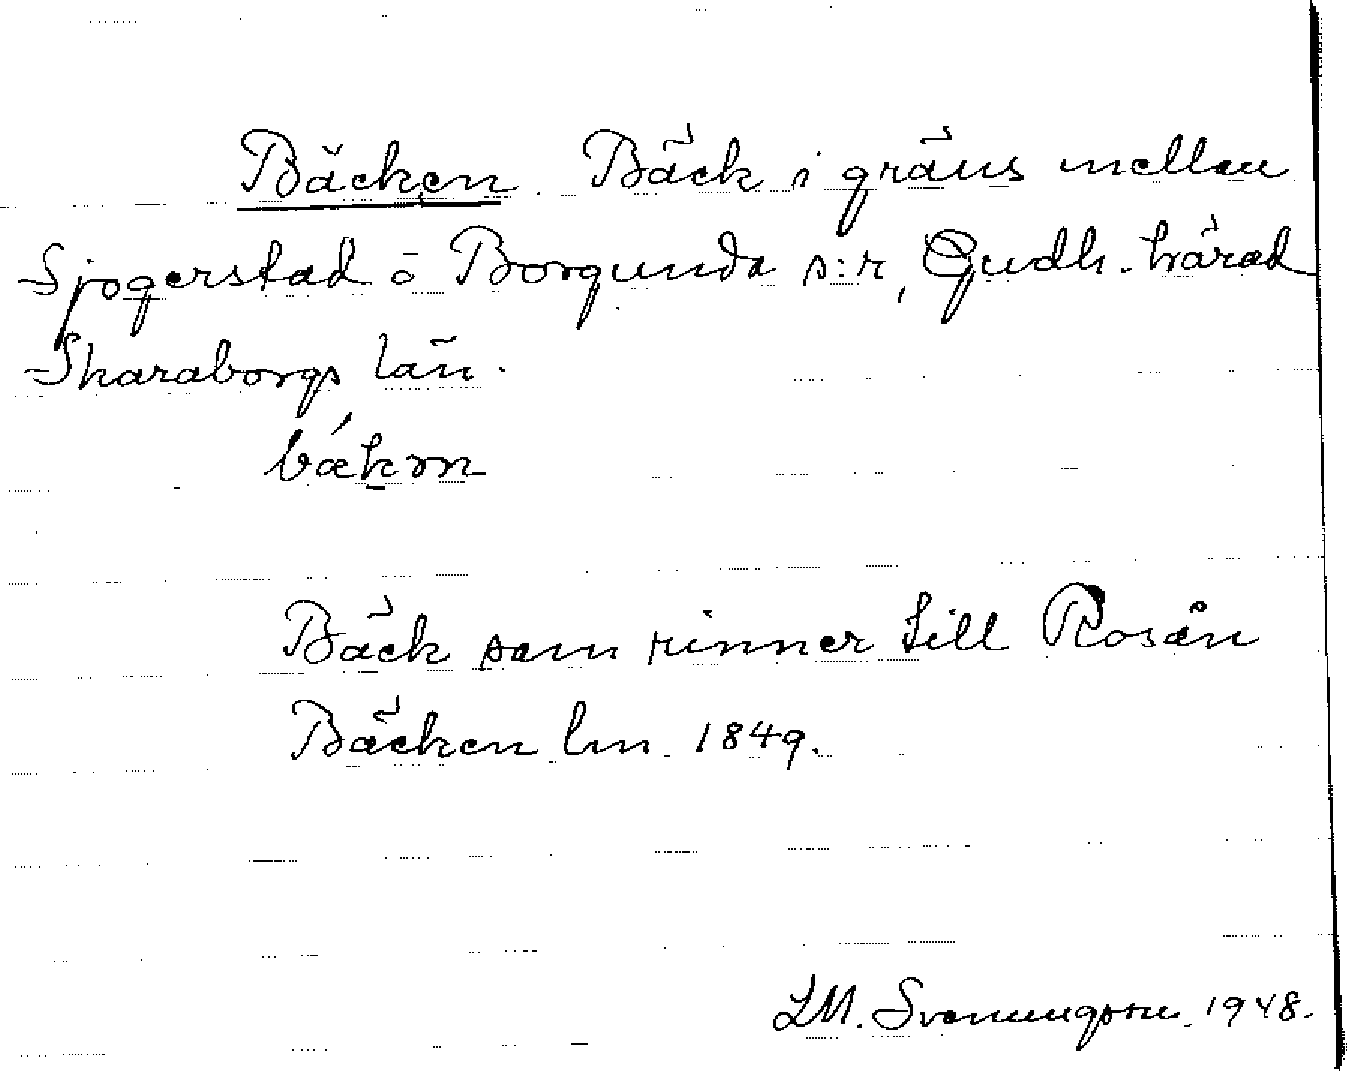 Bäcken. Bäck i gräns mellan
Sjogerstad o Borgunda s:r, Gudh. härad
Skaraborgs län.
bǽkɤn
Bäck som rinner till Rosån
Bäcken lm. 1849.
LM. Svenungsson. 1948.